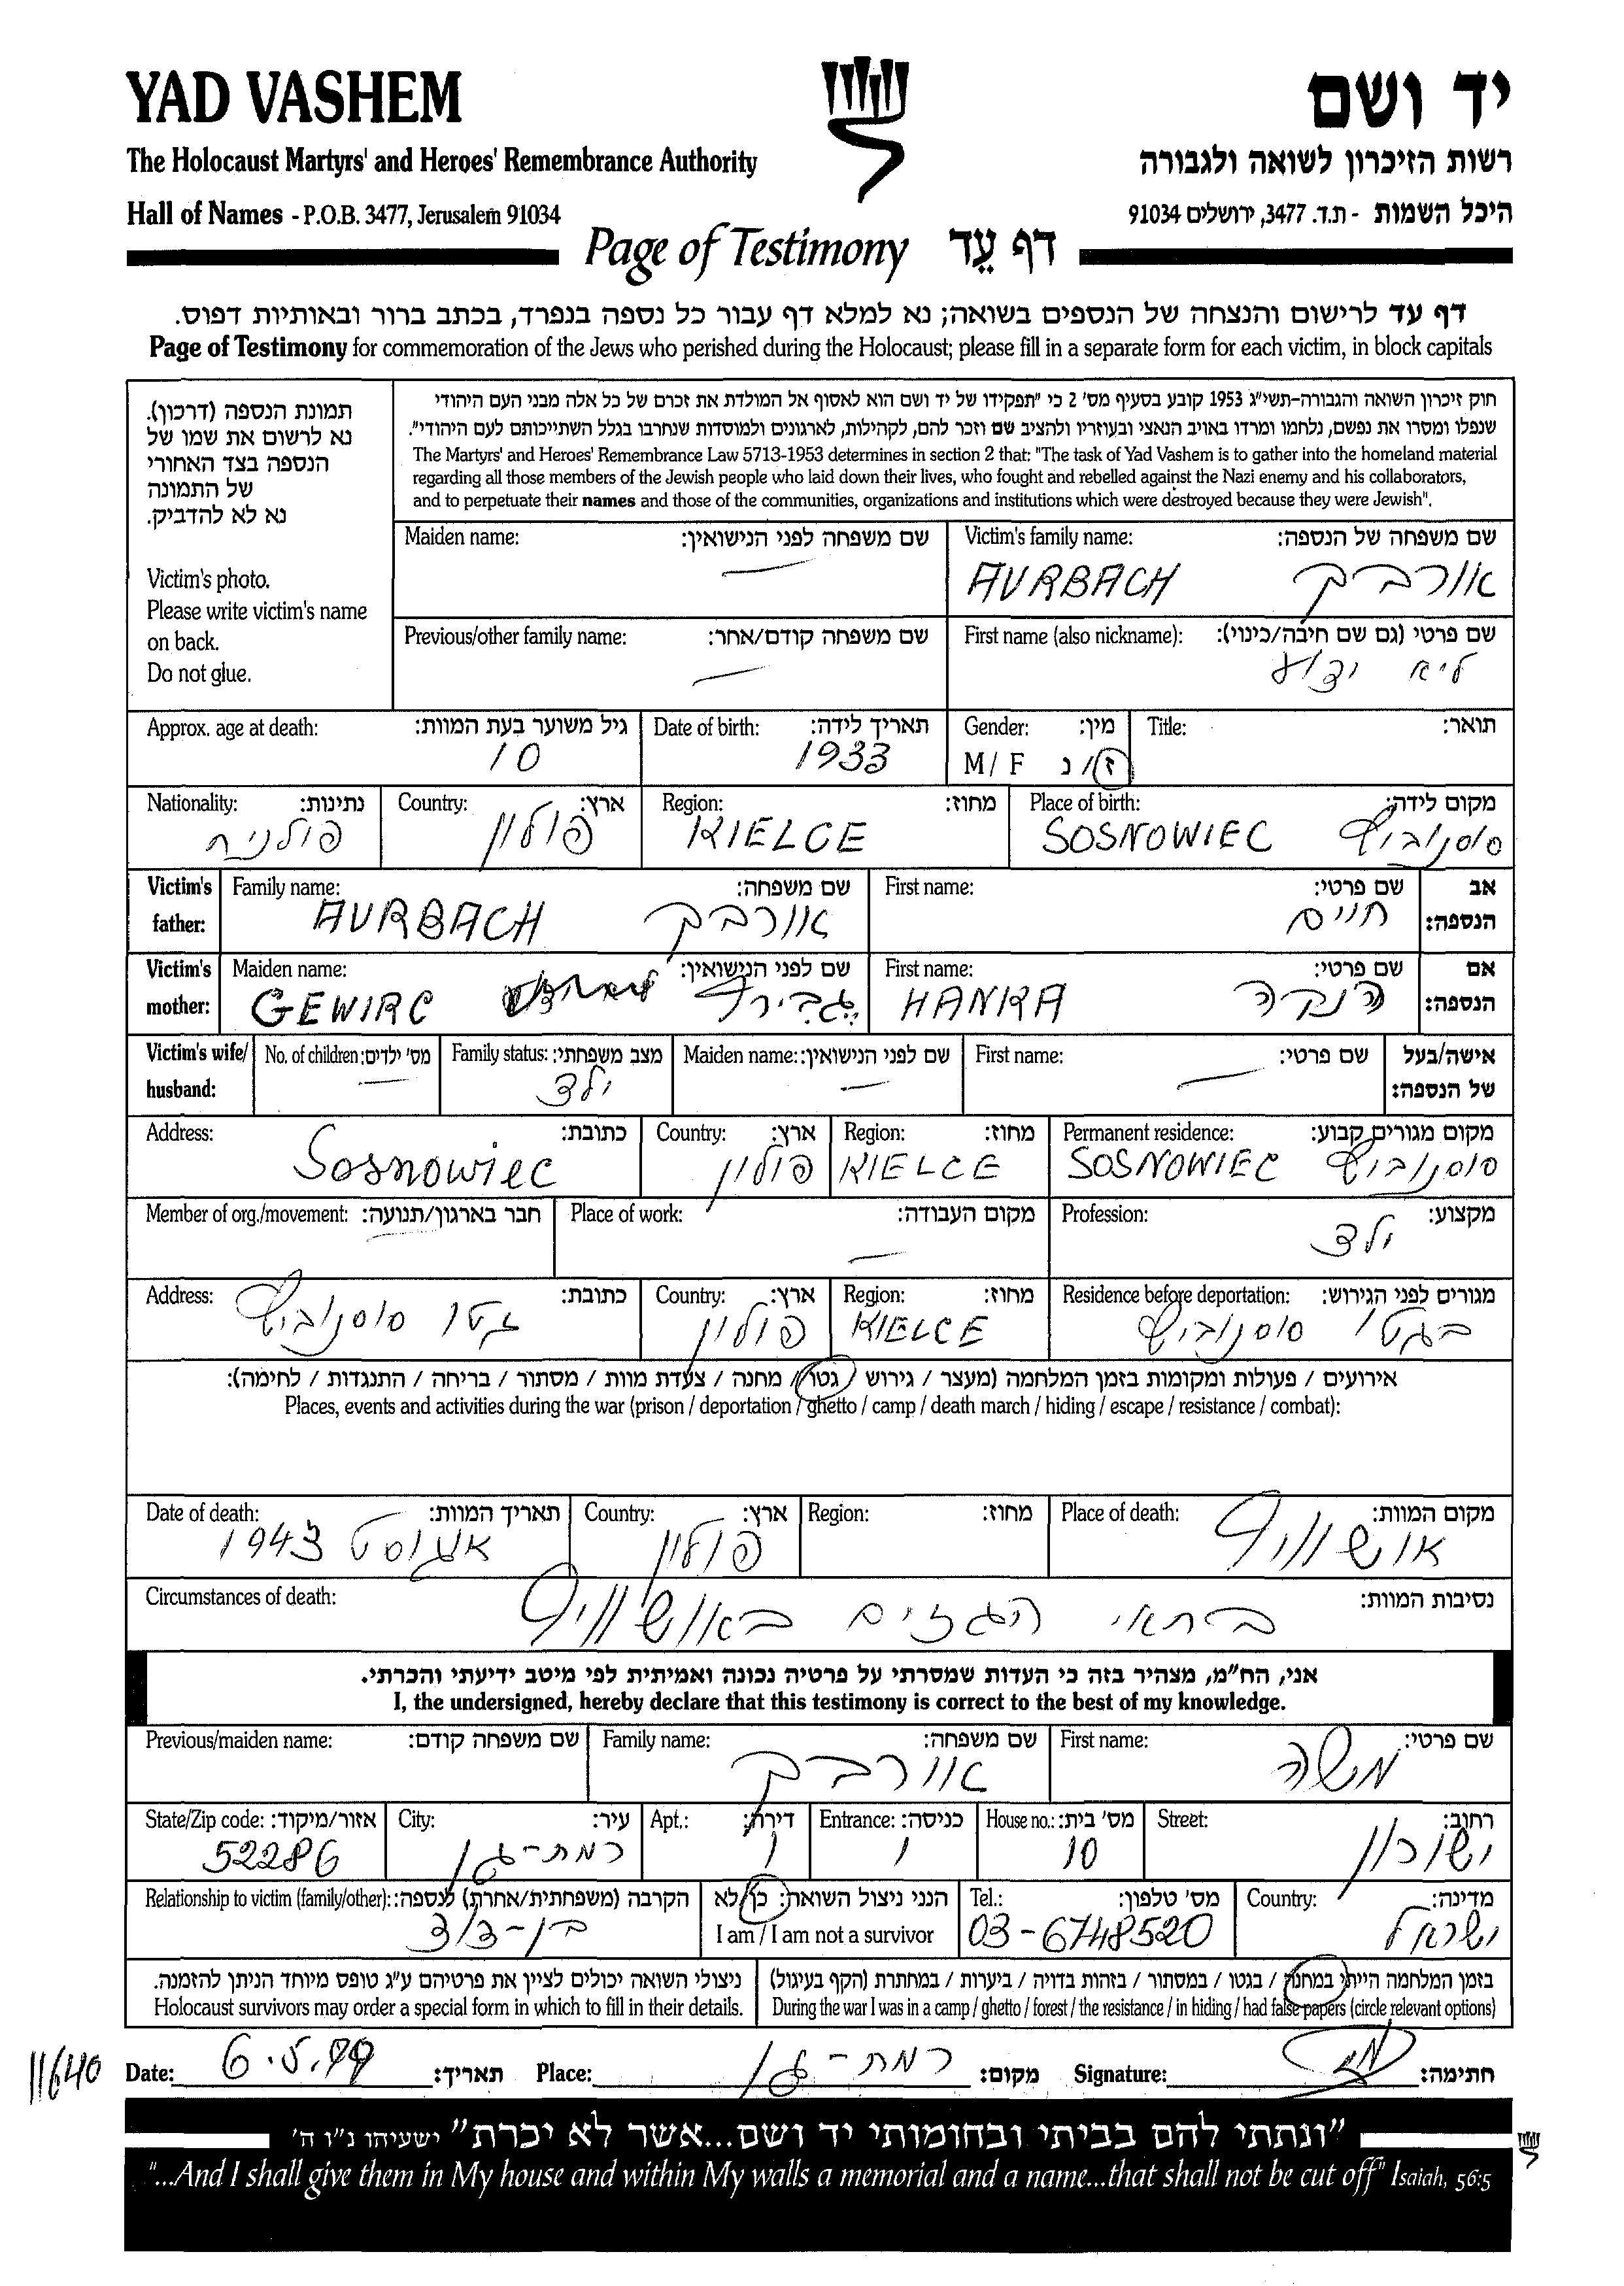 YAD VASHEM
יד ושם
The Holocaust Martyrs' and Heroes' Remembrance Authority
רשות הזיכרון לשואה ולגבורה
Hall of Names - P.O.B. 3477, Jerusalem 91034
היכל השמות - ת.ד. 3477, ירושלים 91034
Page of Testimony דף עֵד
דף עד לרישום והנצחה של הנספים בשואה; נא למלא דף עבור כל נספה בנפרד, בכתב ברור ובאותיות דפוס.
Page of Testimony for commemoration of the Jews who perished during the Holocaust; please fill in a separate form for each victim, in block capitals
תמונת הנספה (דרכון).
נא לרשום את שמו של
הנספה בצד האחורי
של התמונה
נא לא להדביק.
Victim's photo.
Please write victim's name
on back.
Do not glue.
חוק זיכרון השואה והגבורה-תשי״ג 1953 קובע בסעיף מס' 2 כי "תפקידו של יד ושם הוא לאסוף אל המולדת את זכרם של כל אלה מבני העם היהודי
שנפלו ומסרו את נפשם, נלחמו ומרדו באויב הנאצי ובעוזריו ולהציב שם וזכר להם, לקהילות, לארגונים ולמוסדות שנחרבו בגלל השתייכותם לעם היהודי".
The Martyrs' and Heroes' Remembrance Law 5713-1953 determines in section 2 that: "The task of Yad Vashem is to gather into the homeland material
regarding all those members of the Jewish people who laid down their lives, who fought and rebelled against the Nazi enemy and his collaborators,
and to perpetuate their names and those of the communities, organizations and institutions which were destroyed because they were Jewish".
Victim's family name: שם משפחה של הנספה:
AURBACH אורבך
Maiden name: שם משפחה לפני הנישואין:
—
First name (also nickname): שם פרטי (גם שם חיבה/כינוי):
ליא
Previous/other family name: שם משפחה קודם/אחר:
—
Title: תואר:
Gender: מין:
M/ F ז/נ
Date of birth: תאריך לידה:
1933
Approx. age at death: גיל משוער בעת המוות:
10
Place of birth: מקום לידה:
SOSNOWIEC סוסנוביץ
Region: מחוז:
KIELCE
Country: ארץ:
פולין
Nationality: נתינות:
פולנית
Victim's father: אב הנספה:
First name: שם פרטי:
חיים
Family name: שם משפחה:
AURBACH אורבך
Victim's mother: אם הנספה:
First name: שם פרטי:
HANKA הנקה
Maiden name: שם לפני הנישואין:
GEWIRC גבירץ
Victim's wife/ husband: אישה/בעל של הנספה:
First name: שם פרטי:
—
Maiden name: שם לפני הנישואין:
—
Family status: מצב משפחתי:
ילד
No. of children: מס' ילדים:
—
Permanent residence: מקום מגורים קבוע:
SOSNOWIEC סוסנוביץ
Region: מחוז:
KIELCE
Country: ארץ:
פולין
Address: כתובת:
Sosnowiec
Profession: מקצוע:
ילד
Place of work: מקום העבודה:
—
Member of org./movement: חבר בארגון/תנועה:
—
Residence before deportation: מגורים לפני הגירוש:
בגטו סוסנוביץ
Region: מחוז:
KIELCE
Country: ארץ:
פולין
Address: כתובת:
גטו סוסנוביץ
אירועים / פעולות ומקומות בזמן המלחמה (מעצר / גירוש / גטו / מחנה / צעדת מוות / מסתור / בריחה / התנגדות / לחימה):
Places, events and activities during the war (prison / deportation / ghetto / camp / death march / hiding / escape / resistance / combat):
Place of death: מקום המוות:
אושוויץ
Region: מחוז:
Country: ארץ:
פולין
Date of death: תאריך המוות:
אוגוסט 1943
Circumstances of death: נסיבות המוות:
בתאי הגזים באושוויץ
אני, הח״מ, מצהיר בזה כי העדות שמסרתי על פרטיה נכונה ואמיתית לפי מיטב ידיעתי והכרתי.
I, the undersigned, hereby declare that this testimony is correct to the best of my knowledge.
First name: שם פרטי:
משה
Family name: שם משפחה:
אורבך
Previous/maiden name: שם משפחה קודם:
Street: רחוב:
ישורון
House no.: מס' בית:
10
Entrance: כניסה:
1
Apt.: דירה:
1
City: עיר:
רמת-גן
State/Zip code: אזור/מיקוד:
52286
Country: מדינה:
ישראל
Tel.: מס' טלפון:
03-6748520
הנני ניצול השואה: כן/לא
I am / I am not a survivor
Relationship to victim (family/other): הקרבה (משפחתית/אחרת) לנספה:
בן-דוד
בזמן המלחמה הייתי במחנה / בגטו / במסתור / בזהות בדויה / ביערות / במחתרת (הקף בעיגול)
During the war I was in a camp / ghetto / forest / the resistance / in hiding / had false papers (circle relevant options)
ניצולי השואה יכולים לציין את פרטיהם ע״ג טופס מיוחד הניתן להזמנה.
Holocaust survivors may order a special form in which to fill in their details.
11640
Date: 6.5.99 תאריך:
Place: רמת-גן מקום:
Signature: חתימה:
"ונתתי להם בביתי ובחומותי יד ושם...אשר לא יכרת" ישעיהו נ״ו ה'
"...And I shall give them in My house and within My walls a memorial and a name...that shall not be cut off" Isaiah, 56:5